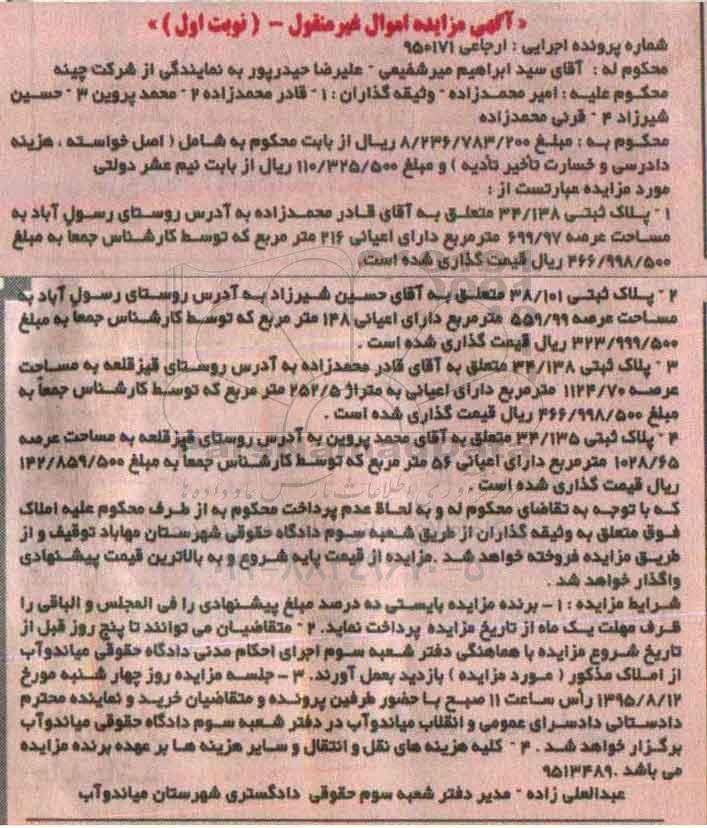 « آگهی مزایده اموال غیر منقول - ( نوبت اول ) »
شماره پرونده اجرایی : ارجاعی ۹۵۰۱۷۱
محکوم له : آقای سید ابراهیم میرشفیعی - علیرضا حیدرپور به نمایندگی از شرکت چینه
محکوم علیه : امیر محمدزاده - وثیقه گذاران : ۱ - قادر محمدزاده ۲ - محمد پروین ۳ - حسین
شیرزاد ۴ - قرنی محمدزاده
محکوم به : مبلغ ۸/۲۳۶/۷۸۳/۲۰۰ ریال از بابت محکوم به شامل ( اصل خواسته ، هزینه
دادرسی و خسارت تأخیر تأدیه ) و مبلغ ۱۱۰/۳۲۵/۵۰۰ ریال از بابت نیم عشر دولتی
مورد مزایده عبارتست از :
۱ - پلاک ثبتی ۳۴/۱۳۸ متعلق به آقای قادر محمدزاده به آدرس روستای رسول آباد به
مساحت عرصه ۶۹۹/۹۷ مترمربع دارای اعیانی ۲۱۶ متر مربع که توسط کارشناس جمعا به مبلغ
۴۶۶/۹۹۸/۵۰۰ ریال قیمت گذاری شده است.
۲ - پلاک ثبتی ۳۸/۱۰۱ متعلق به آقای حسین شیرزاد به آدرس روستای رسول آباد به
مساحت عرصه ۵۵۹/۹۹ مترمربع دارای اعیانی ۱۴۸ متر مربع که توسط کارشناس جمعا به مبلغ
۳۲۳/۹۹۹/۵۰۰ ریال قیمت گذاری شده است .
۳ - پلاک ثبتی ۳۴/۱۳۸ متعلق به آقای قادر محمدزاده به آدرس روستای قیزقلعه به مساحت
عرصه ۱۱۲۴/۷۰ مترمربع دارای اعیانی به متراژ ۲۵۲/۵ متر مربع که توسط کارشناس جمعاً به
مبلغ ۴۶۶/۹۹۸/۵۰۰ ریال قیمت گذاری شده است .
۴ - پلاک ثبتی ۳۴/۱۳۵ متعلق به آقای محمد پروین به آدرس روستای قیزقلعه به مساحت عرصه
۱۰۲۸/۶۵ مترمربع دارای اعیانی ۵۶ متر مربع که توسط کارشناس جمعاً به مبلغ ۱۴۲/۸۵۹/۵۰۰
ریال قیمت گذاری شده است .
که با توجه به تقاضای محکوم له و به لحاظ عدم پرداخت محکوم به از طرف محکوم علیه املاک
فوق متعلق به وثیقه گذاران از طریق شعبه سوم دادگاه حقوقی شهرستان مهاباد توقیف و از
طریق مزایده فروخته خواهد شد .مزایده از قیمت پایه شروع و به بالاترین قیمت پیشنهادی
واگذار خواهد شد .
شرایط مزایده : ۱ - برنده مزایده بایستی ده درصد مبلغ پیشنهادی را فی المجلس و الباقی را
ظرف مهلت یک ماه از تاریخ مزایده پرداخت نماید. ۲ - متقاضیان می توانند تا پنج روز قبل از
تاریخ شروع مزایده با هماهنگی دفتر شعبه سوم اجرای احکام مدنی دادگاه حقوقی میاندوآب
از املاک مذکور ( مورد مزایده ) بازدید بعمل آورند. ۳ - جلسه مزایده روز چهار شنبه مورخ
۱۳۹۵/۸/۱۲ رأس ساعت ۱۱ صبح با حضور طرفین پرونده و متقاضیان خرید و نماینده محترم
دادستانی دادسرای عمومی و انقلاب میاندوآب در دفتر شعبه سوم دادگاه حقوقی میاندوآب
برگزار خواهد شد . ۴ - کلیه هزینه های نقل و انتقال و سایر هزینه ها بر عهده برنده مزایده
می باشد .۹۵۱۳۴۸۹
عبدالعلی زاده - مدیر دفتر شعبه سوم حقوقی دادگستری شهرستان میاندوآب